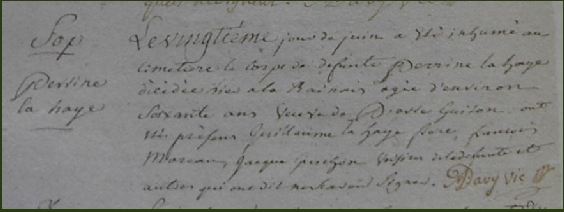 Sap
Perrine
la haye
Le vingtiéme jour de juin a été inhumé au
cimetiere le corps de defunte perrine la haye
décédée hier a la agée d'environ
Soxante ans veuve de Guiton ont
été présens Guillaume la haye frere, francois
Moreau, jacque de la defunte et
autres qui ont dit ne scavoir Signer. Davy Vic